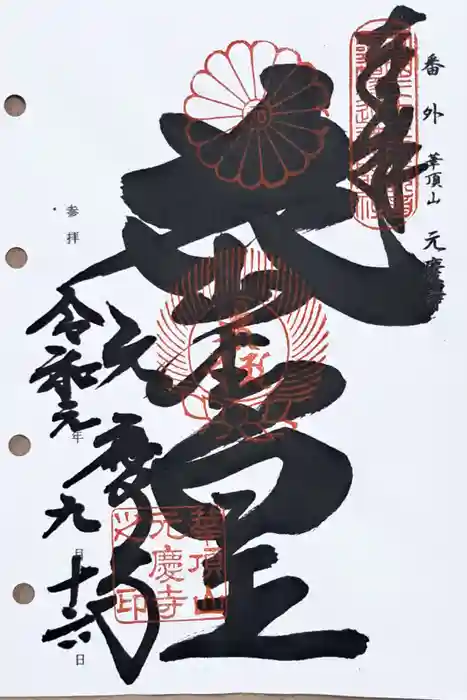 番外 華頂山 元慶寺
奉拝
花山法皇
元慶寺
参拝 令和元年九月十六日
華頂山
元慶寺
之印